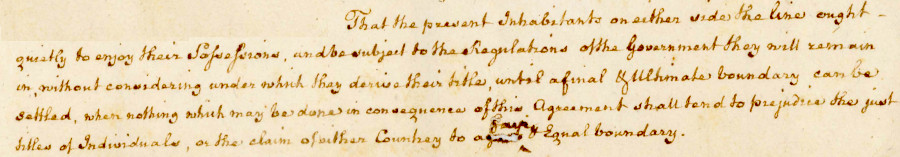 That the present Inhabitants on either side the line ought
quietly to enjoy their Possessions, and be subject to the Regulations of the Government they will remain
in, without considering under which they derive their title, until a final & Ultimate boundary can be
settled, when nothing which may be done in consequence of this Agreement shall tend to prejudice the just
titles of Individuals, or the claim of either Country to a fair & Equal boundary.